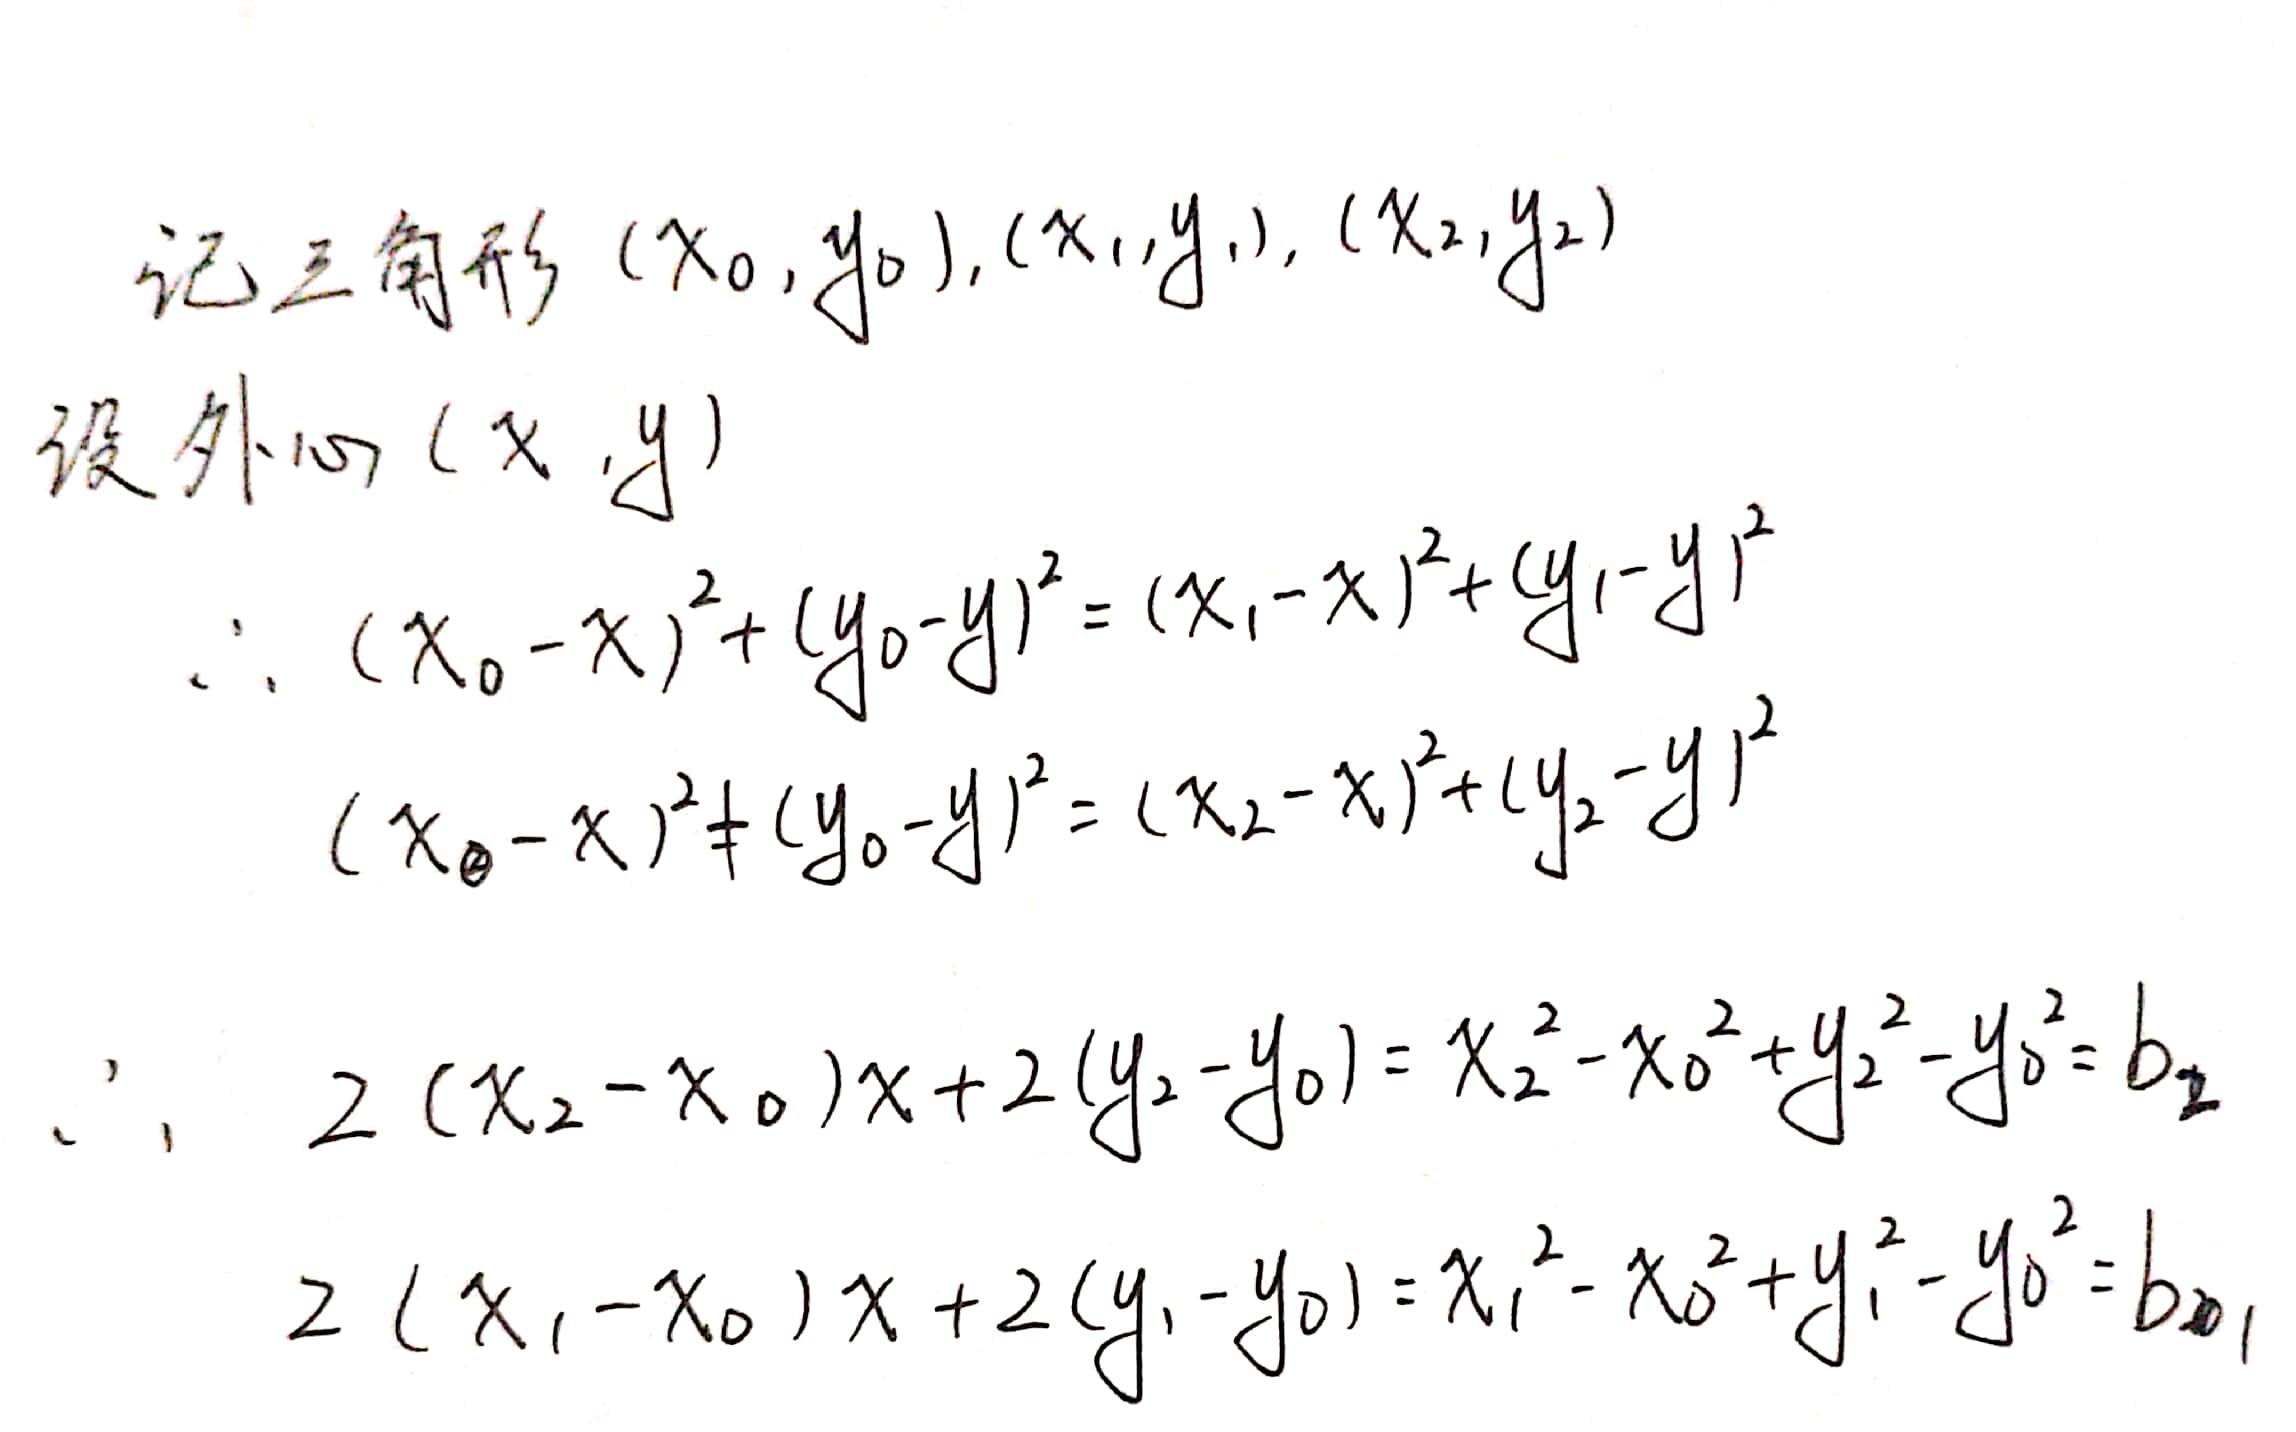 记三角形 (x₀, y₀), (x₁, y₁), (x₂, y₂)
设外心 (x, y)
∴ (x₀-x)²+(y₀-y)²=(x₁-x)²+(y₁-y)²
(x₀-x)²+(y₀-y)²=(x₂-x)²+(y₂-y)²
∴ 2(x₂-x₀)x+2(y₂-y₀)=x₂²-x₀²+y₂²-y₀²=b₂
2(x₁-x₀)x+2(y₁-y₀)=x₁²-x₀²+y₁²-y₀²=b₁